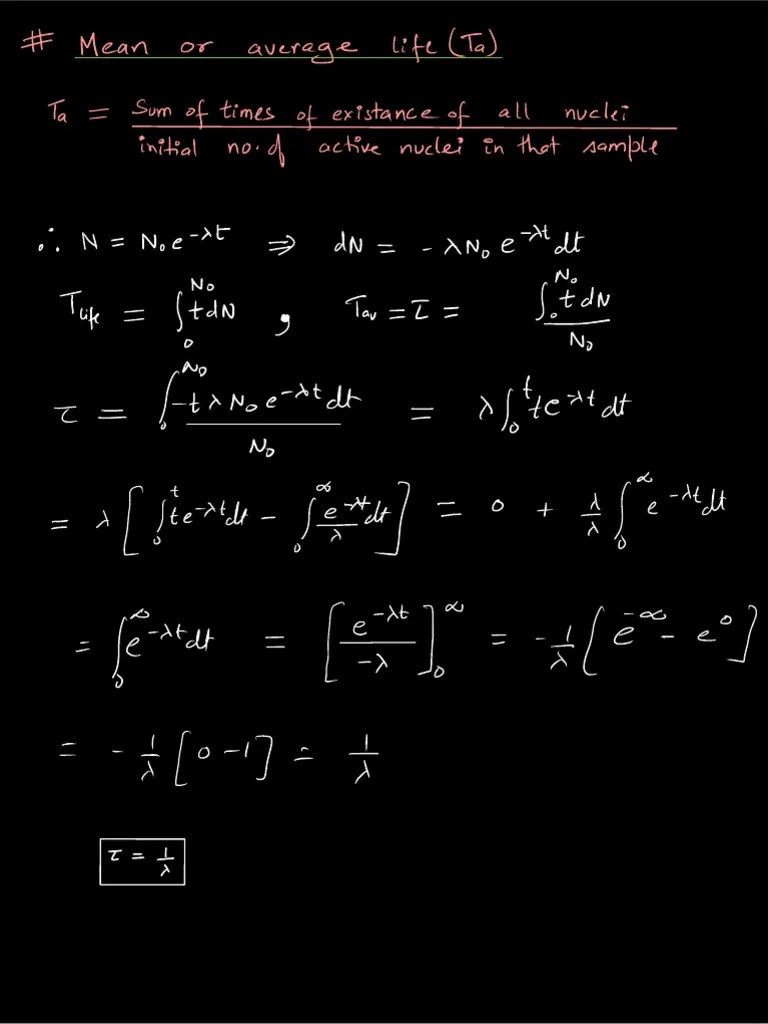 # Mean or average life (Ta)
Ta = Sum of times of existance of all nuclei
initial no. of active nuclei in that sample
∴ N = N₀e^-λt ⇒ dN = -λN₀e^-λt dt
T_life = ∫₀^N₀ t dN , Tav = τ = ∫₀^N₀ t dN / N₀
τ = ∫₀^N₀ -tλN₀e^-λt dt / N₀ = λ∫₀^t te^-λt dt
= λ[∫₀^t te^-λt dt - ∫₀^∞ e^-λt/λ dt] = 0 + λ/λ ∫₀^∞ e^-λt dt
= ∫₀^∞ e^-λt dt = [e^-λt / -λ]₀^∞ = -1/λ [e^-∞ - e^0]
= -1/λ [0-1] = 1/λ
τ = 1/λ